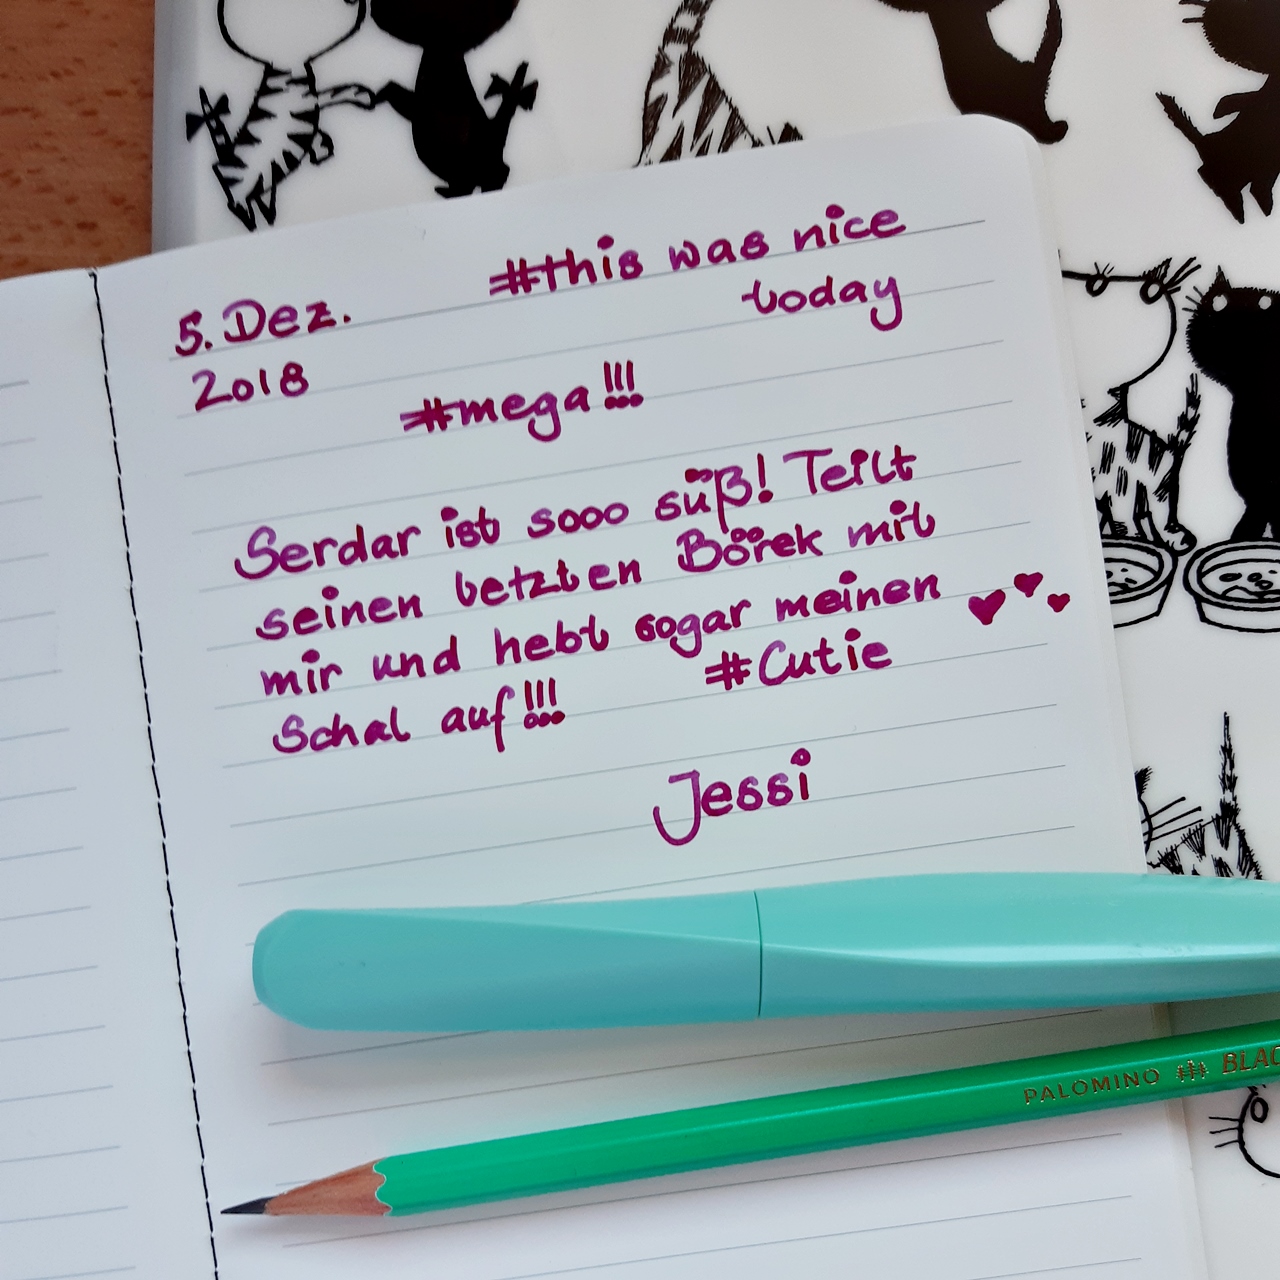 #this was nice
today
5. Dez.
2018
#mega!!!
Serdar ist sooo süß! Teilt
seinen letzten Börek mit
mir und hebt sogar meinen
Schal auf!!! #Cutie
Jessi
PALOMINO